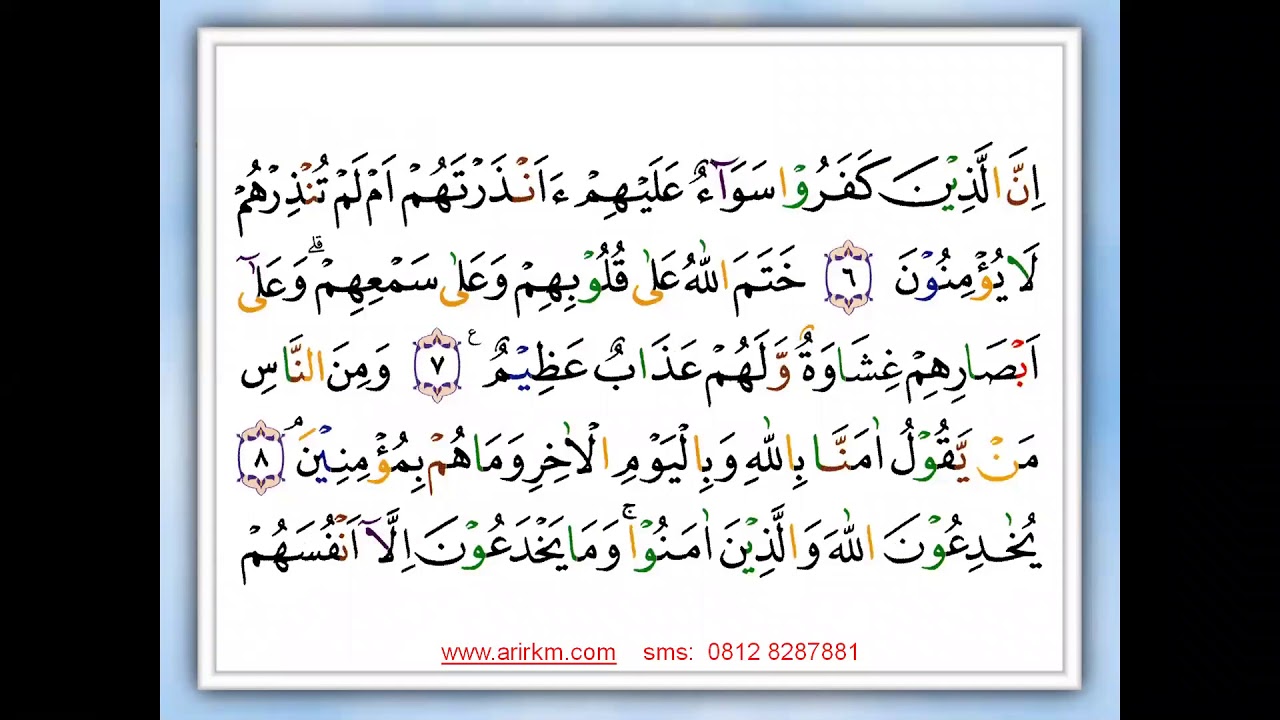 اِنَّ الَّذِيْنَ كَفَرُوْا سَوَآءٌ عَلَيْهِمْ ءَاَنْذَرْتَهُمْ اَمْ لَمْ تُنْذِرْهُمْ
لَا يُؤْمِنُوْنَ ٦ خَتَمَ اللّٰهُ عَلٰى قُلُوْبِهِمْ وَعَلٰى سَمْعِهِمْ ۗ وَعَلٰٓى
اَبْصَارِهِمْ غِشَاوَةٌ وَّلَهُمْ عَذَابٌ عَظِيْمٌ ࣖ ٧ وَمِنَ النَّاسِ
مَنْ يَّقُوْلُ اٰمَنَّا بِاللّٰهِ وَبِالْيَوْمِ الْاٰخِرِ وَمَا هُمْ بِمُؤْمِنِيْنَۘ ٨
يُخٰدِعُوْنَ اللّٰهَ وَالَّذِيْنَ اٰمَنُوْا ۚ وَمَا يَخْدَعُوْنَ اِلَّآ اَنْفُسَهُمْ
www.arirkm.com sms: 0812 8287881